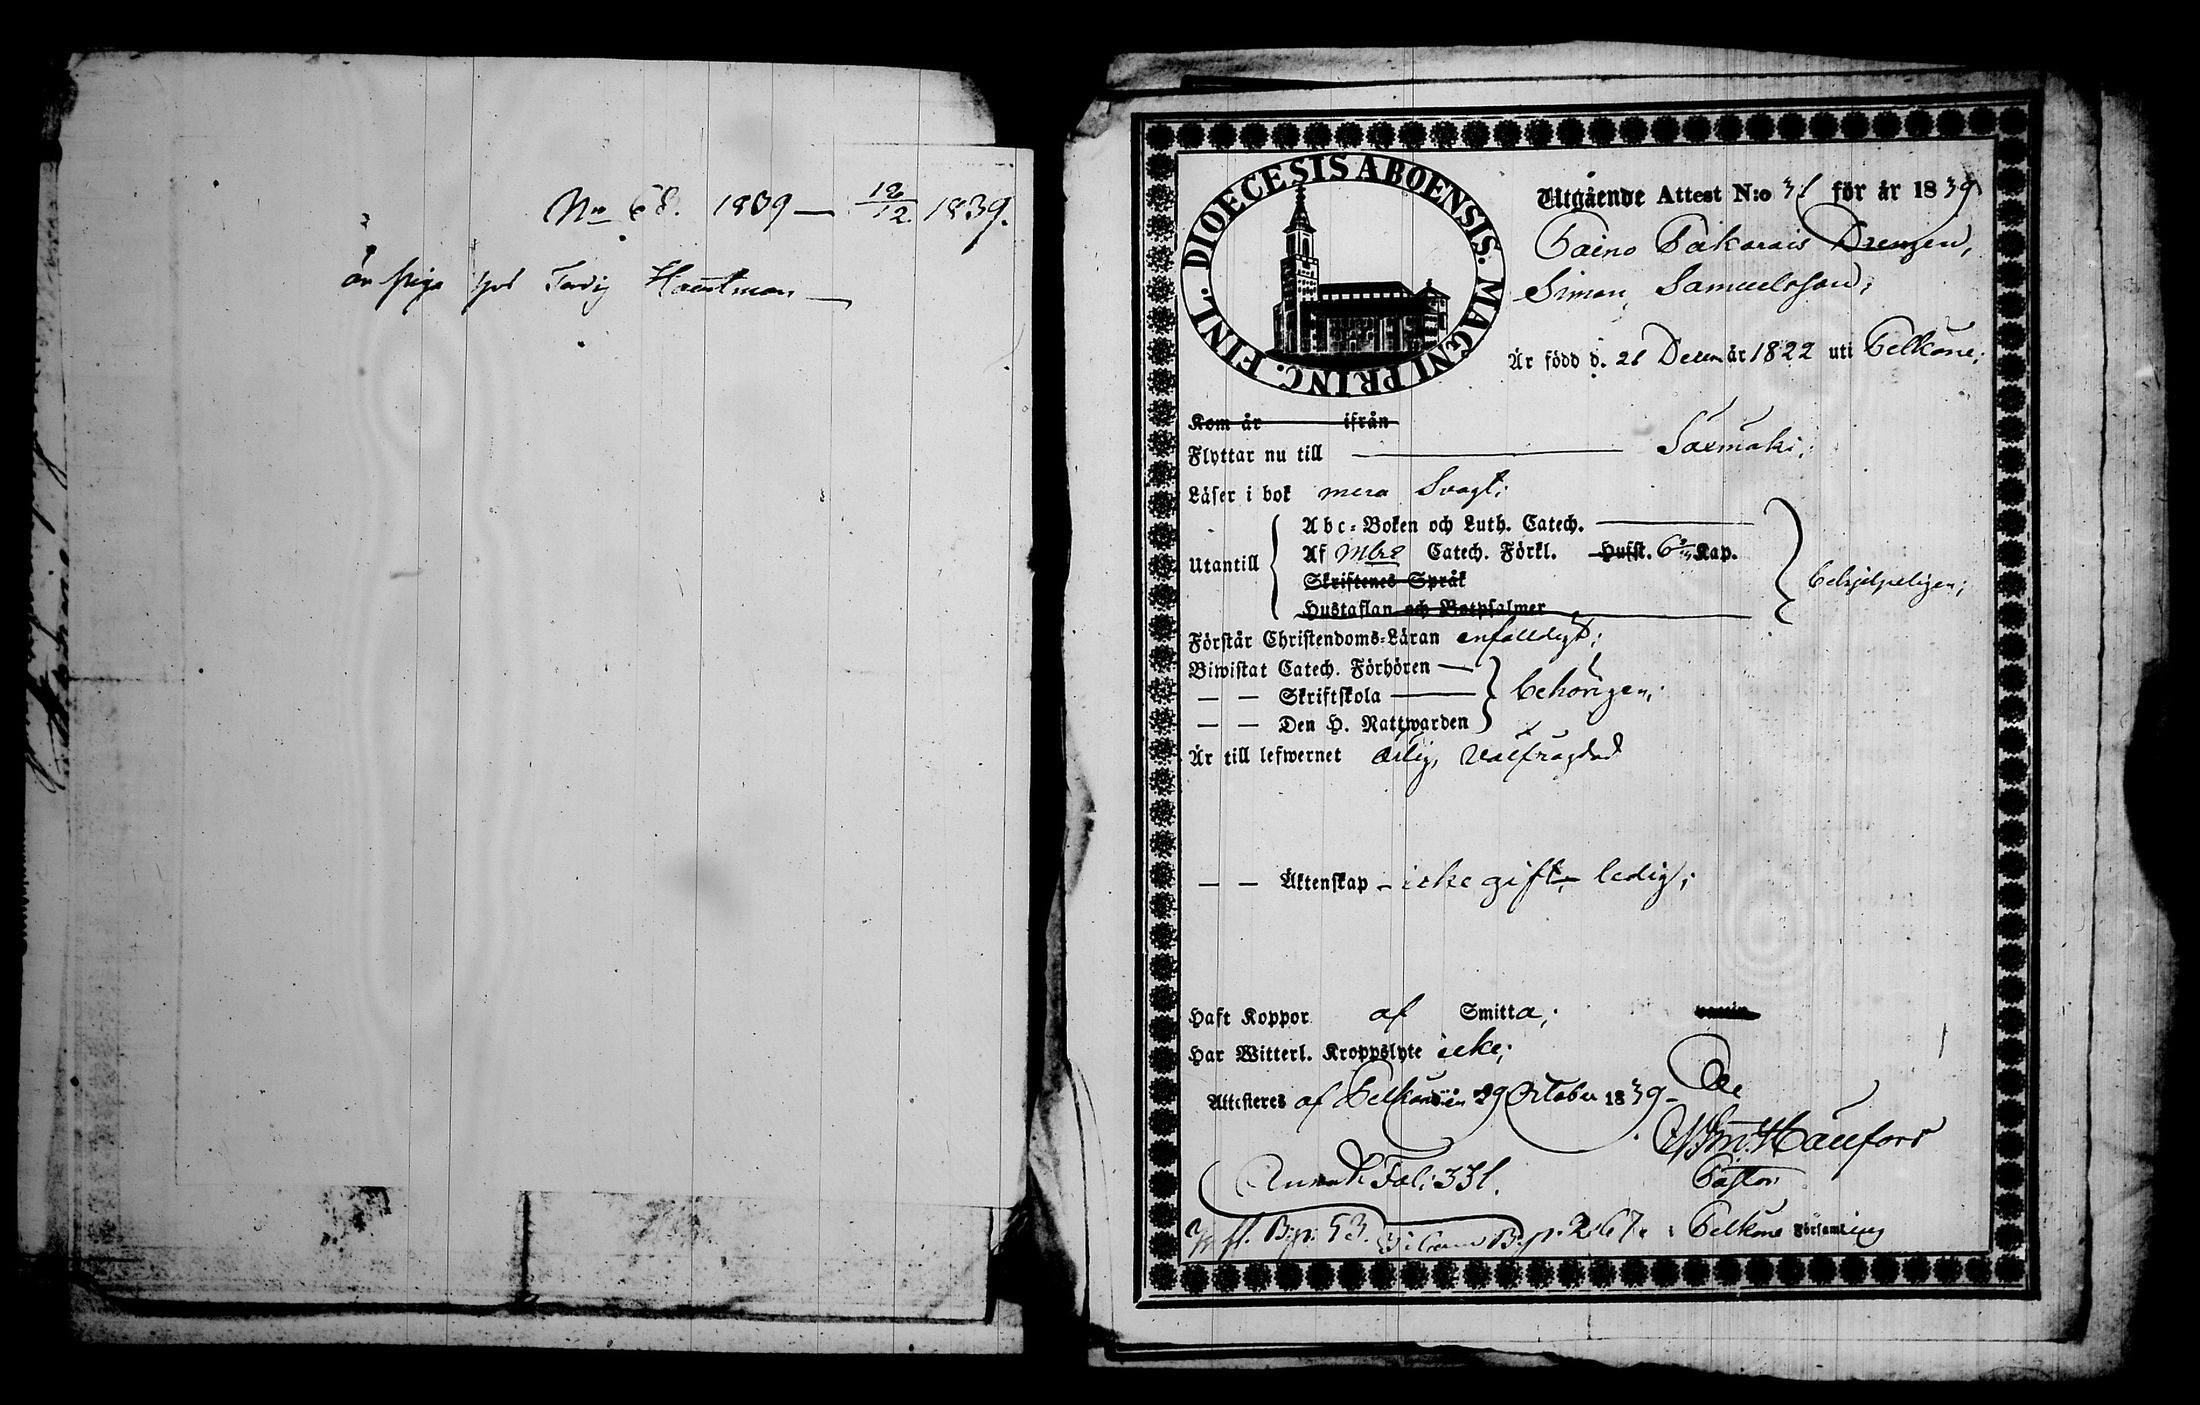 No 68. 1839 — 18/12 1839.
är piga hos Hartman —
DIOECESIS ABOENSIS. MAGNI PRINC. FINL.
Utgående Attest N:o 31 för år 1839
Drengen,
Simon Samuelsson;
Är född d. 21 Decem år 1822 uti Pelkäne;
Kom år ifrån
Flyttar nu till — Säxmäki;
Läser i bok mera Svagt;
Utantill
Abc-Boken och Luth. Catech. —
Af Mbrs Catech. Förkl. Hufst. 6 Kap.
Skriftenes Språk
Hustaflan och Botpsalmer
behjelpeligen;
Förstår Christendoms-Läran enfalldigt;
Biwistat Catech. Förhören —
— — Skriftskola —
— — Den H. Nattwarden
behörigen;
Är till lefwernet ärlig, välfrägdad
— — Äktenskap – icke gift, ledig;
Haft Koppor af Smitta;
Har Witterl. Kroppslyte icke;
Attesteres af Pelkäne den 29 October 1839 –
Pastor
Fol: 331.
B. p. 53. B. p. 267. Pelkäne Församling